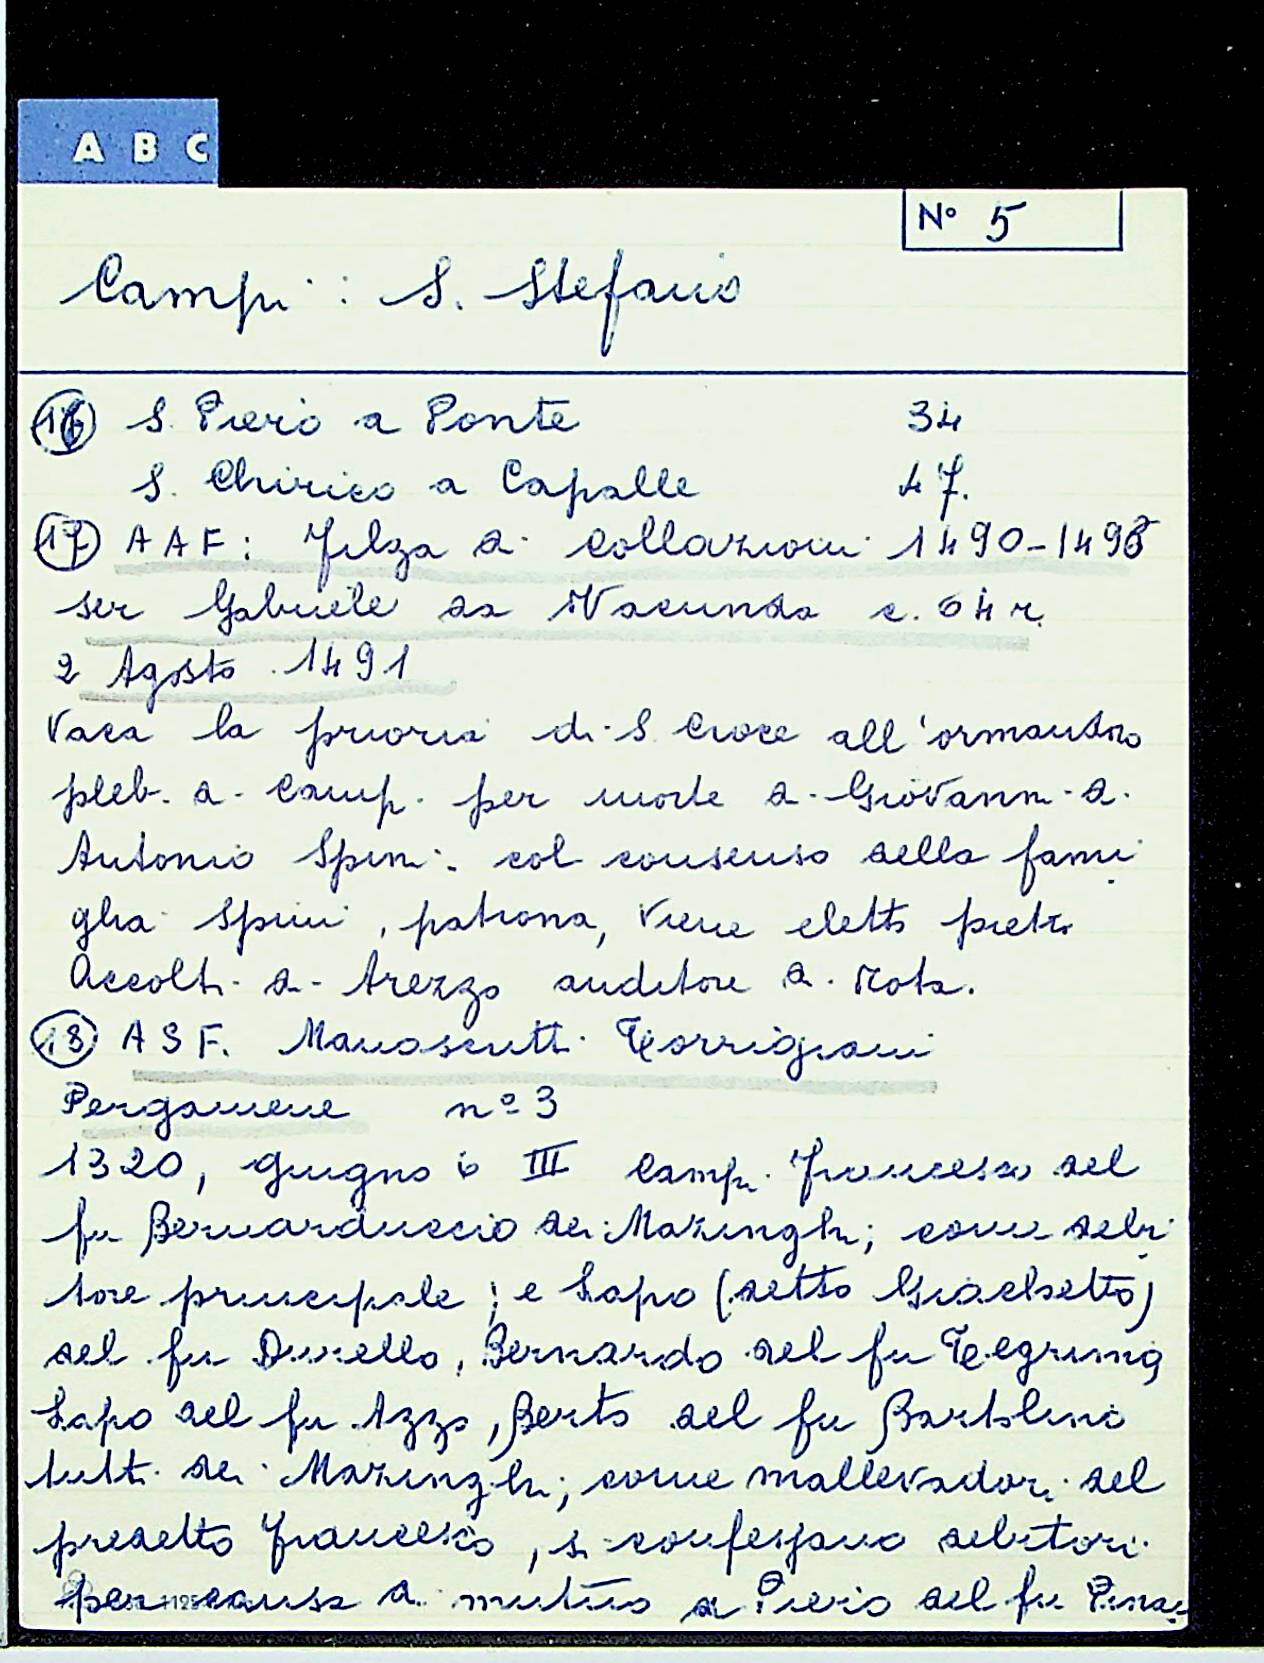 A B C
N° 5
Campi : S. Stefano
16 S. Piero a Ponte 34
S. Chirico a Capalle 47.
17 AAF: Filza di collazioni 1490-1498
ser Gabriele da c. 64 r.
2 Agosto 1491
Vaca la prioria di S. Croce all'ormandoro
pleb. di Campi per morte di Giovanni di
Antonio Spini. col consenso della fami
glia Spini, patrona, viene eletto pietro
Accolti di Arezzo auditore di Rota.
18 ASF. Manoscritti Torrigiani
Pergamene n° 3
1320, giugno 6 III Campi. Francesco del
fu Bernarduccio dei Mazinghi; come debi
tore principale; e Lapo (detto)
del fu Durello, Bernardo del fu Tegrimo,
Lapo del fu Azzo, Berto del fu Bartolino
tutti dei Mazinghi; come mallevadori del
predetto Francesco, si confessano debitori
per causa di mutuo a Piero del fu